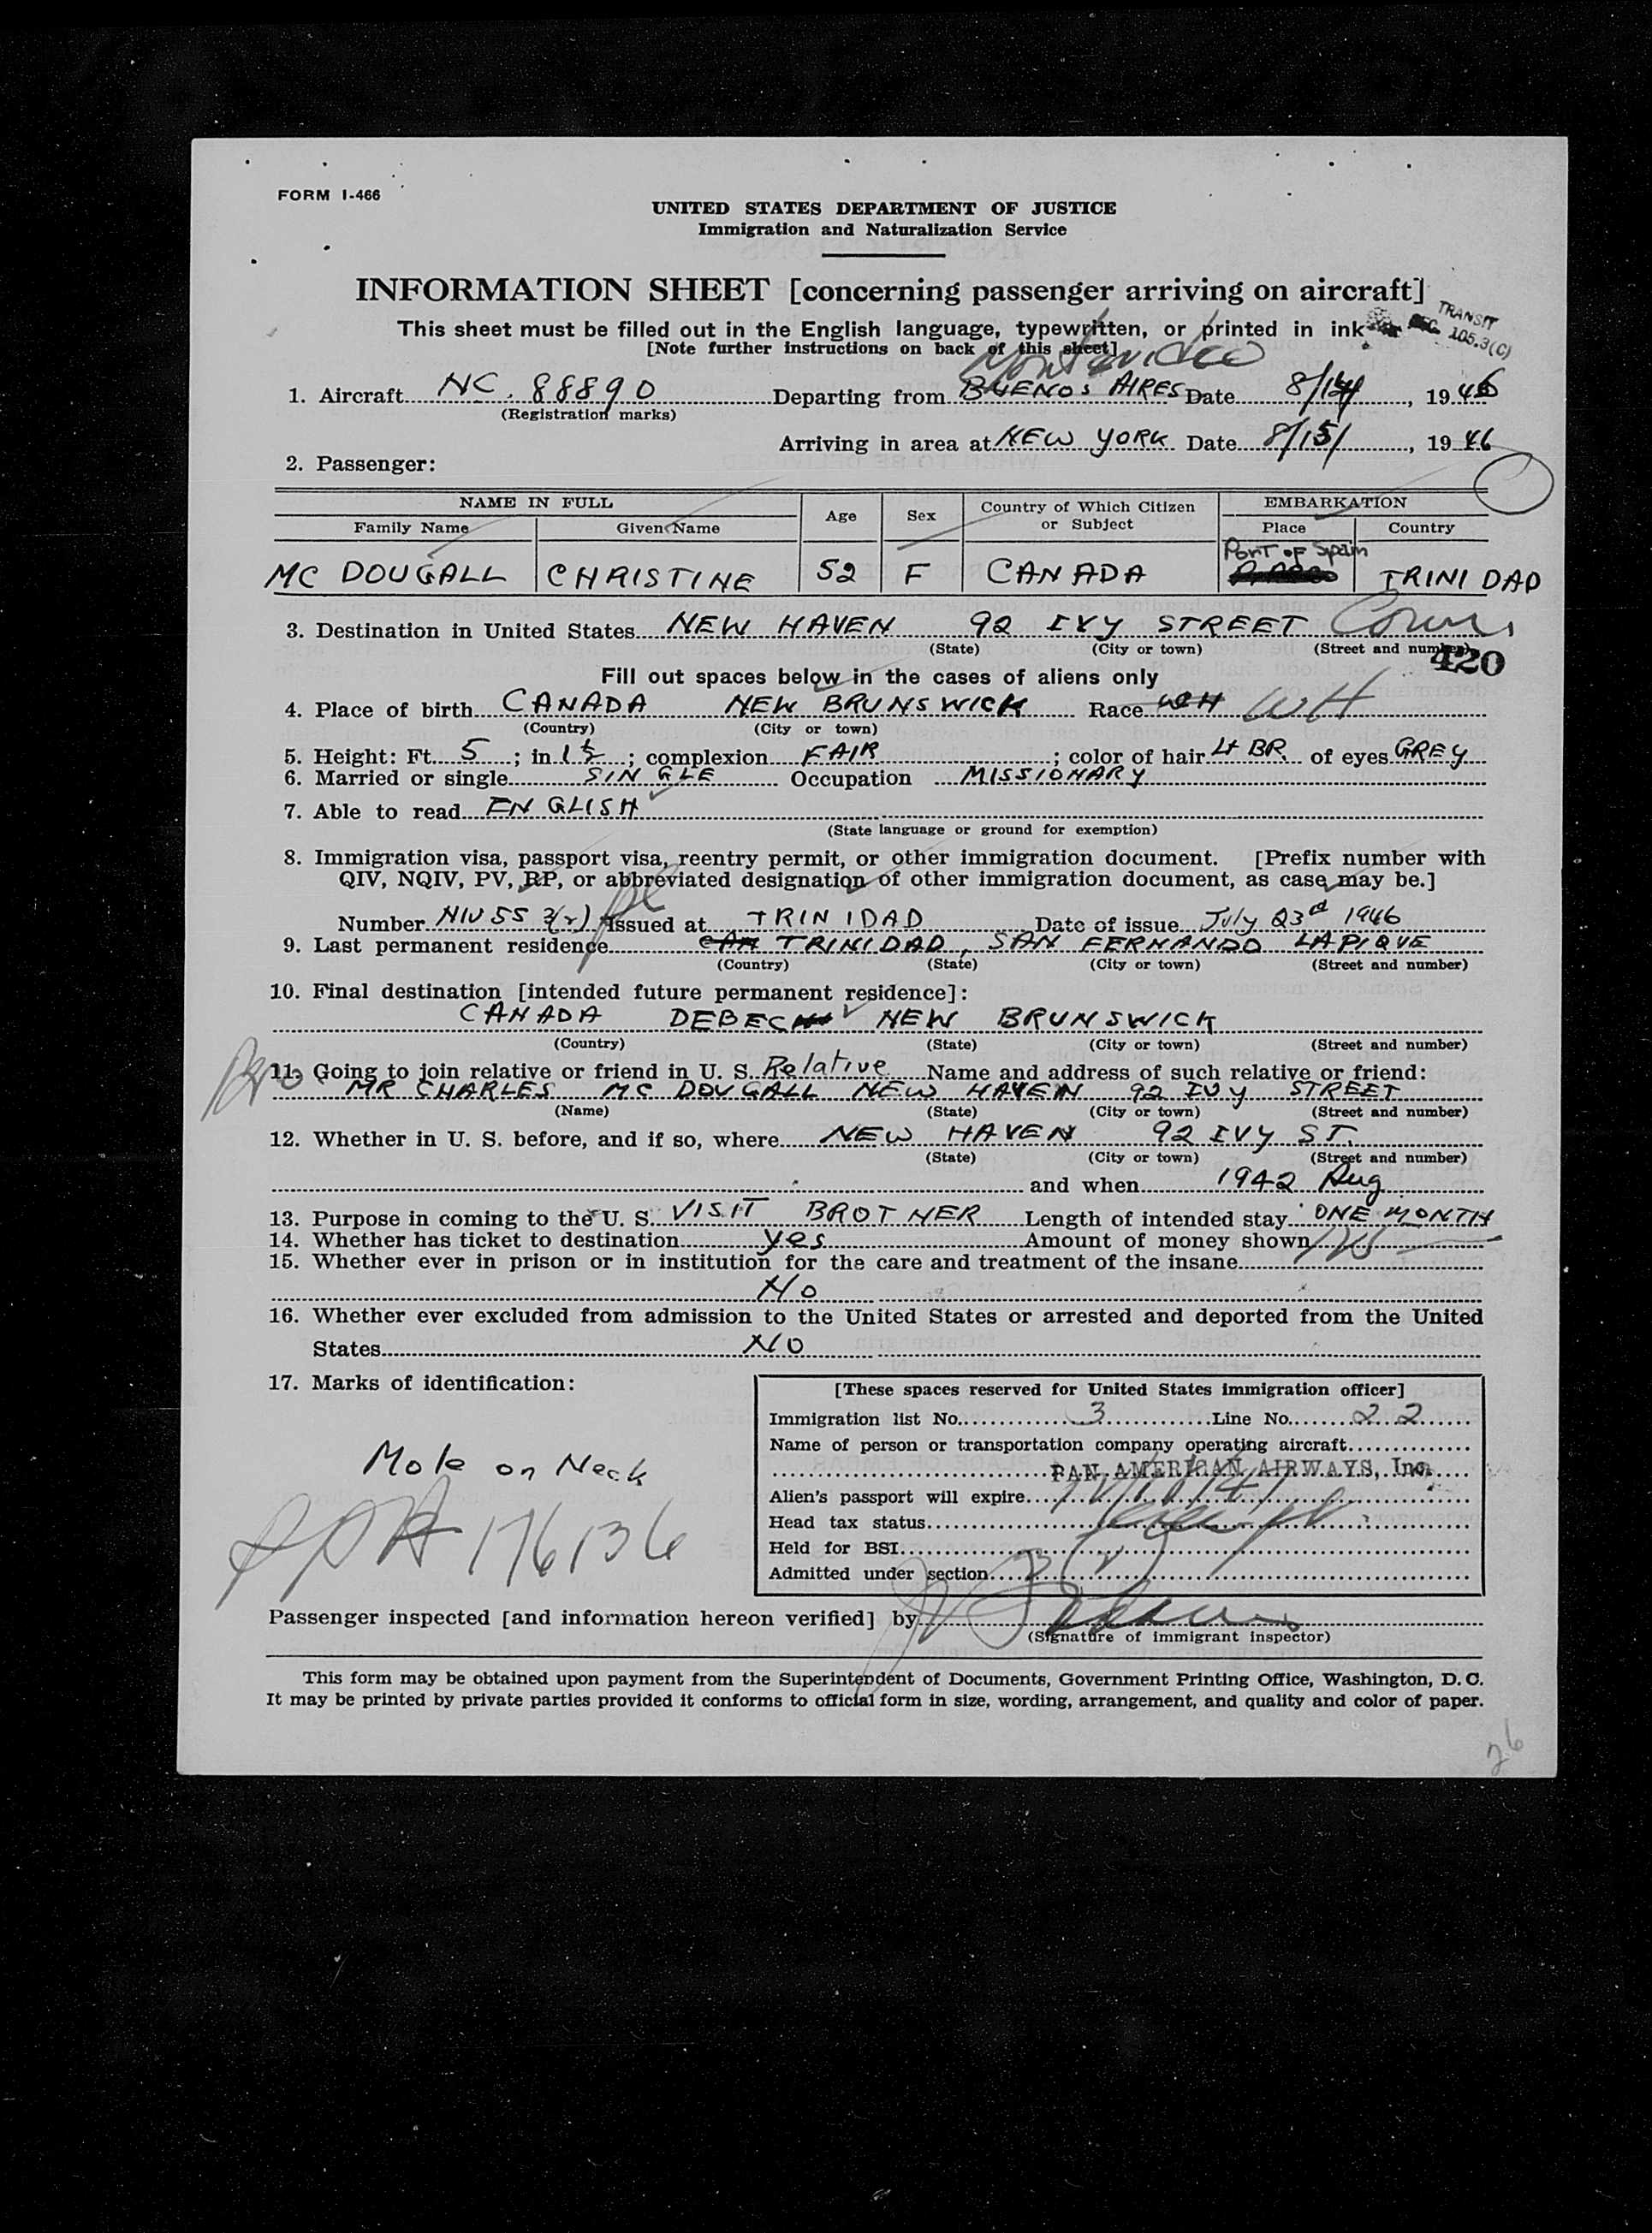 FORM I-466
UNITED STATES DEPARTMENT OF JUSTICE
Immigration and Naturalization Service
INFORMATION SHEET [concerning passenger arriving on aircraft]
TRANSIT
SEC. 105.3(C)
This sheet must be filled out in the English language, typewritten, or printed in ink
[Note further instructions on back of this sheet]
Montevideo
1. Aircraft NC. 88890 Departing from BUENOS AIRES Date 8/14/, 1946
(Registration marks)
Arriving in area at NEW YORK Date 8/15/, 1946
2. Passenger:
NAME IN FULL Age Sex Country of Which Citizen or Subject EMBARKATION
Family Name Given Name Place Country
Port of Spain
MC DOUGALL CHRISTINE 52 F CANADA TRINIDAD
3. Destination in United States NEW HAVEN 92 IVY STREET Conn
(State) (City or town) (Street and number)
420
Fill out spaces below in the cases of aliens only
4. Place of birth CANADA NEW BRUNSWICK Race WH WH
(Country) (City or town)
5. Height: Ft. 5; in. 1½; complexion FAIR; color of hair LT BR. of eyes GREY
6. Married or single SINGLE Occupation MISSIONARY
7. Able to read ENGLISH
(State language or ground for exemption)
8. Immigration visa, passport visa, reentry permit, or other immigration document. [Prefix number with
QIV, NQIV, PV, RP, or abbreviated designation of other immigration document, as case may be.]
Number NIV 55 3(2) Issued at TRINIDAD Date of issue July 23rd 1946
9. Last permanent residence TRINIDAD, SAN FERNANDO LAPIQUE
(Country) (State) (City or town) (Street and number)
10. Final destination [intended future permanent residence]:
CANADA DEBEC NEW BRUNSWICK
(Country) (State) (City or town) (Street and number)
Bro
11. Going to join relative or friend in U. S. Relative Name and address of such relative or friend:
MR CHARLES MC DOUGALL NEW HAVEN 92 IVY STREET
(Name) (State) (City or town) (Street and number)
12. Whether in U. S. before, and if so, where NEW HAVEN 92 IVY ST.
(State) (City or town) (Street and number)
and when 1942 Aug
13. Purpose in coming to the U. S. VISIT BROTHER Length of intended stay ONE MONTH
14. Whether has ticket to destination yes Amount of money shown
15. Whether ever in prison or in institution for the care and treatment of the insane
No
16. Whether ever excluded from admission to the United States or arrested and deported from the United
States NO
17. Marks of identification:
Mole on Neck
176136
[These spaces reserved for United States immigration officer]
Immigration list No. 3 Line No. 22
Name of person or transportation company operating aircraft
PAN AMERICAN AIRWAYS, Inc.
Alien's passport will expire
Head tax status
Held for BSI
Admitted under section 3(2)
Passenger inspected [and information hereon verified] by
(Signature of immigrant inspector)
This form may be obtained upon payment from the Superintendent of Documents, Government Printing Office, Washington, D. C.
It may be printed by private parties provided it conforms to official form in size, wording, arrangement, and quality and color of paper.
26